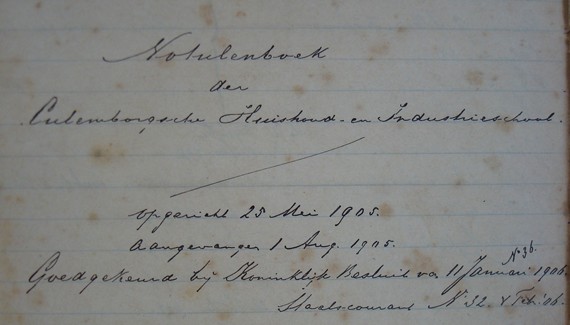 Notulenboek
der
Culemborgsche Huishoud- en Industrieschool.
Opgericht 25 Mei 1905.
Aangevangen 1 Aug. 1905.
No 36.
Goedgekeurd bij Koninklijk Besluit van 11 Januari 1906
Staatscourant No 32. Feb: 06.